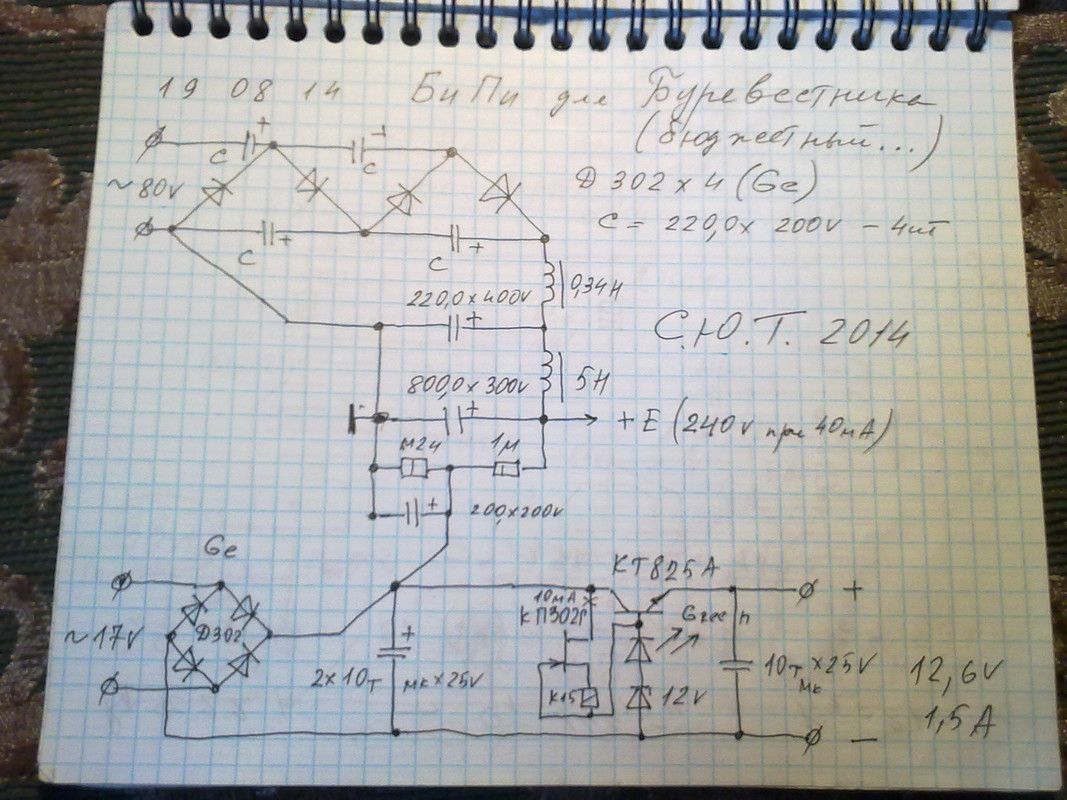 19 08 14 БиПи для Буревестника
(бюджетный...)
Д 302 х 4 (Ge)
C = 220,0 х 200v - 4шт
+
+
C
C
~ 80v
+
+
C
C
0,34H
220,0 х 400v
+
С.Ю.Т. 2014
5H
800,0 х 300v
+
+ E (240v при 40мА)
м24
1м
+
200,х200v
Ge
КТ825А
+
10мА
КП302Г
Green
~ 17v
Д302
+
2х10т мк х 25v
к15
12v
10т х 25v
мк
12,6v
1,5А
−